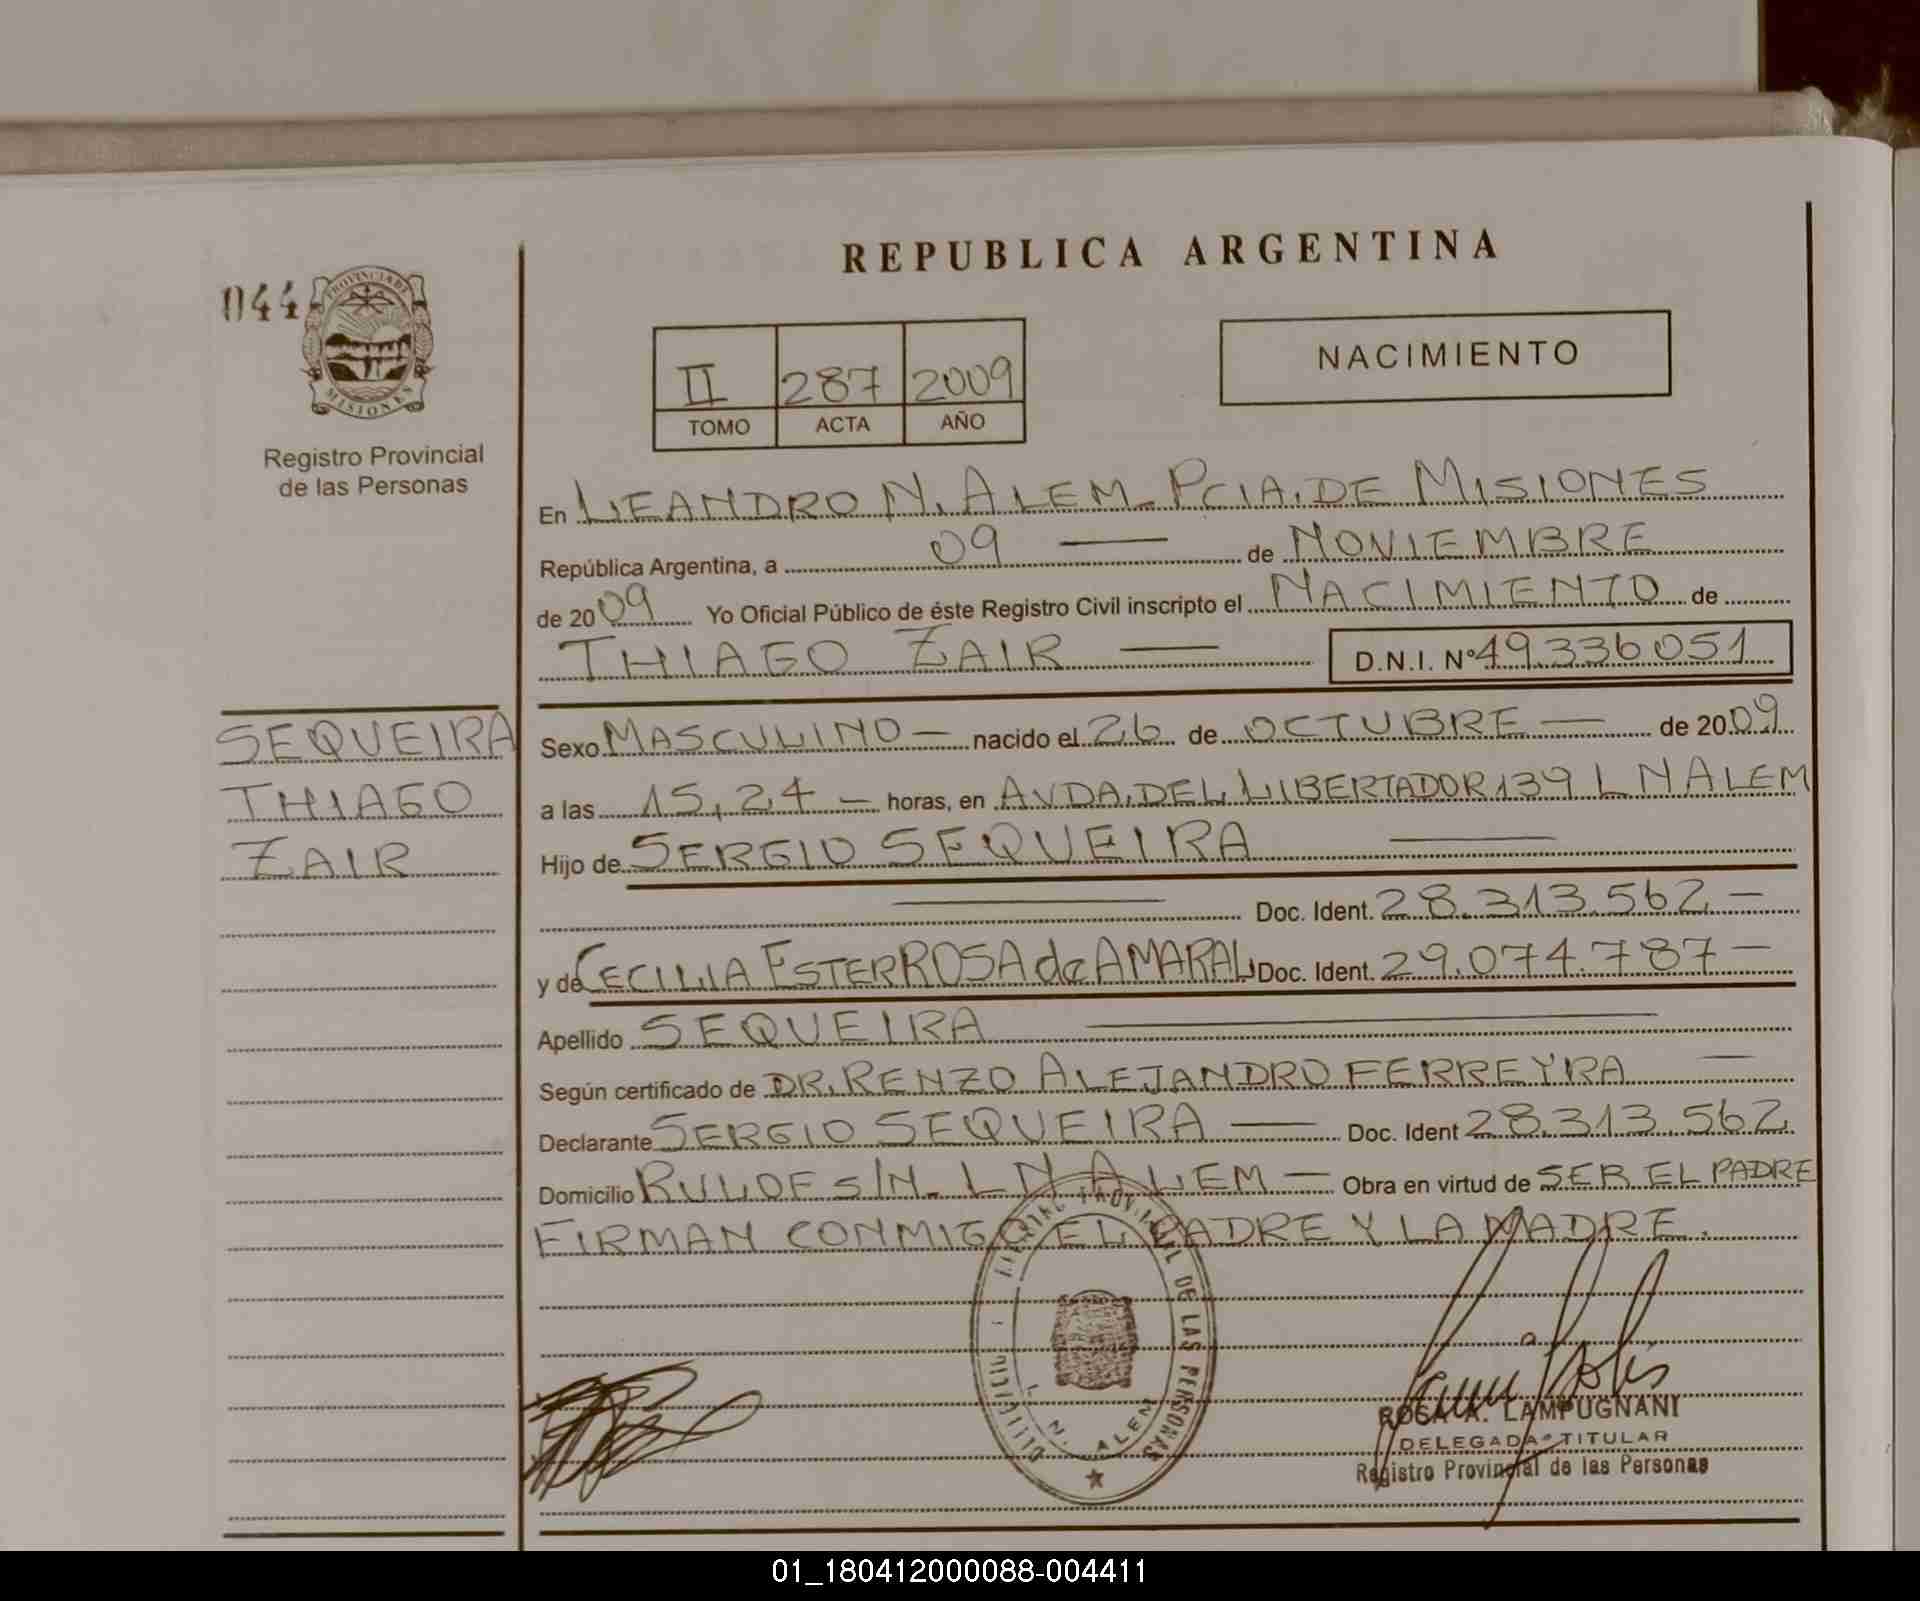 REPUBLICA ARGENTINA
044
PROVINCIA DE
MISIONES
NACIMIENTO
II 287 2009
TOMO ACTA AÑO
Registro Provincial
de las Personas
En LEANDRO N. ALEM - PCIA. DE MISIONES
República Argentina, a 09 — de NOVIEMBRE
de 2009 Yo Oficial Público de éste Registro Civil inscripto el NACIMIENTO de
THIAGO ZAIR — D.N.I. Nº 49.336051
SEQUEIRA
THIAGO
ZAIR
Sexo MASCULINO — nacido el 26 de OCTUBRE — de 2009
a las 15,24 — horas, en AVDA. DEL LIBERTADOR 139 L N ALEM
Hijo de SERGIO SEQUEIRA —
— Doc. Ident. 28.313.562 —
y de CECILIA ESTER ROSA de AMARAL Doc. Ident. 29.074.787 —
Apellido SEQUEIRA —
Según certificado de DR. RENZO ALEJANDRO FERREYRA —
Declarante SERGIO SEQUEIRA — Doc. Ident 28.313.562
Domicilio RULOF S/N. L N ALEM — Obra en virtud de SER EL PADRE
FIRMAN CONMIGO EL PADRE Y LA MADRE.
DE LAS PERSONAS
L. N. ALEM
ROSA A. LAMPUGNANI
DELEGADA TITULAR
Registro Provincial de las Personas
01_180412000088-004411